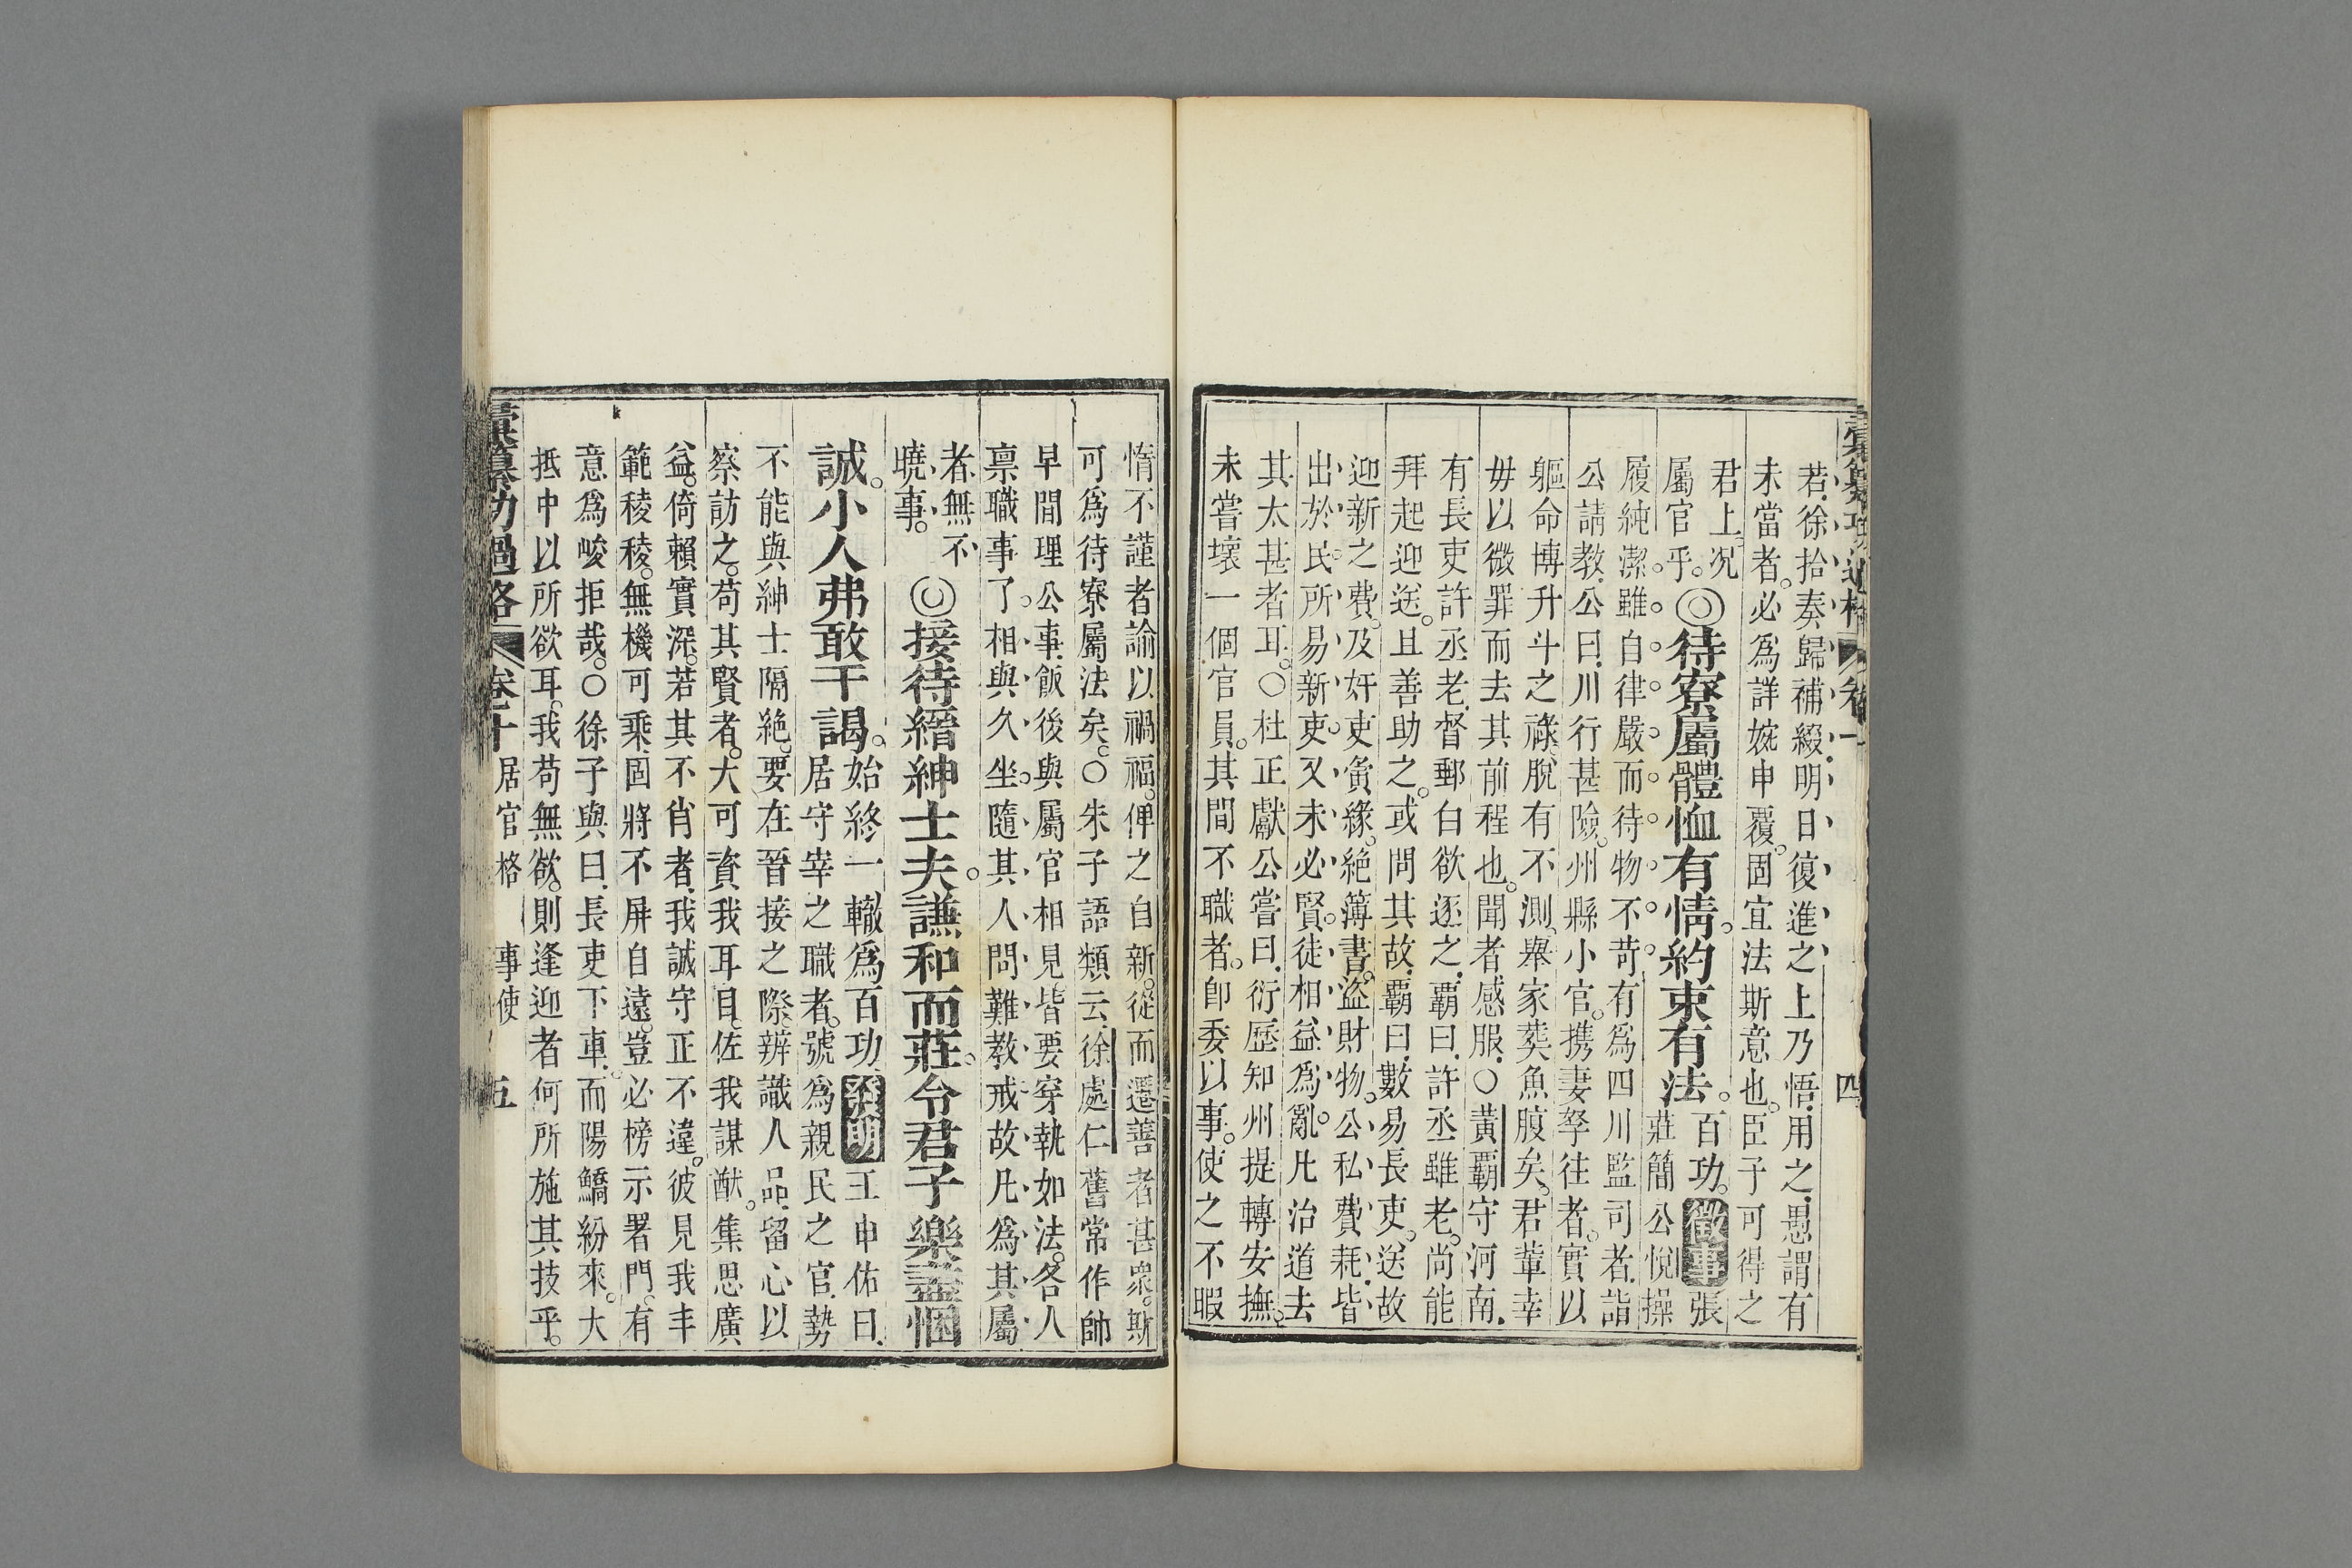 若徐拾奏歸補綴明日復進之上乃悟用之愚謂有
未當者必爲詳婉申覆固宜法斯意也臣子可得之
君上况
屬官乎◎待寮屬體恤有情約束有法百功徵事張
莊簡公悅操
履純潔雖自律嚴而待物不苛有爲四川監司者詣
公請教公曰川行甚險州縣小官携妻孥往者實以
軀命博升斗之祿脫有不測舉家葬魚腹矣君軰幸
毋以微罪而去其前程也聞者感服○黃覇守河南
有長吏許丞老督郵白欲逐之覇曰許丞雖老尚能
拜起迎送且善助之或問其故覇曰數易長吏送故
迎新之費及奸吏夤緣絶簿書盜財物公私費耗皆
出於民所易新吏又未必賢徒相益爲亂凡治道去
其太甚者耳○杜正獻公嘗曰衍歷知州提轉安撫
未嘗壞一個官員其間不職者卽委以事使之不暇
四
惰不謹者諭以禍福俾之自新從而遷善者甚衆斯
可爲待寮屬法矣○朱子語類云徐處仁舊常作帥
早間理公事飯後與屬官相見皆要穿執如法各人
禀職事了相與久坐隨其人問難教戒故凡爲其屬
者無不
曉事◎接待縉紳士夫謙和而莊令君子樂葢悃
誠小人弗敢干謁始終一轍爲百功發明王申佑曰
居守宰之職者號爲親民之官勢
不能與紳士隔絶要在晉接之際辨識人品留心以
察訪之苟其賢者大可資我耳目佐我謀猷集思廣
益倚賴實深若其不肖者我誠守正不違彼見我丰
範稜稜無機可乘固將不屏自遠豈必榜示署門有
意爲峻拒哉○徐子與曰長吏下車而陽鱎紛來大
抵中以所欲耳我苟無欲則逢迎者何所施其技乎
彙纂功過格 卷十 居官格 事使 五